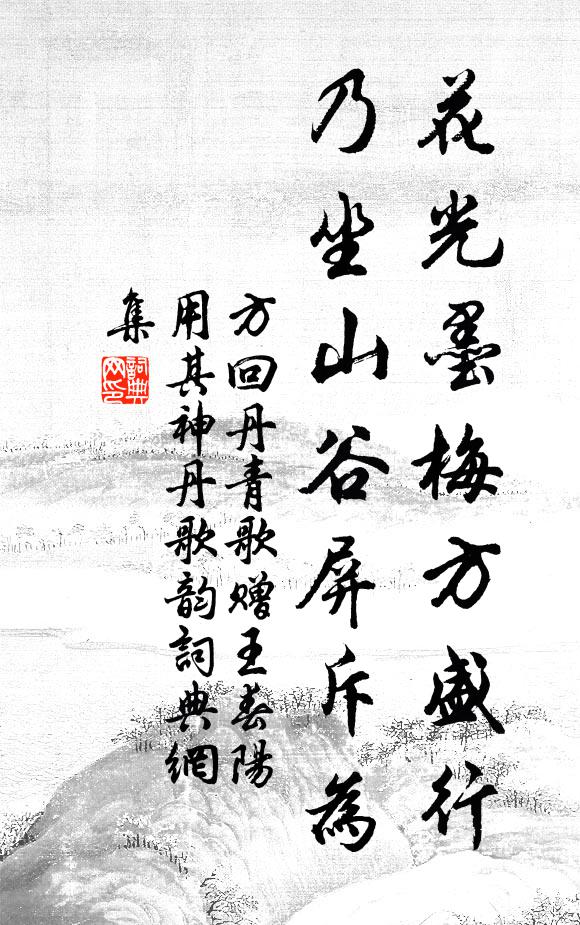 花光墨梅方盛行
乃坐山谷屏斥為
方回丹青歌贈王春陽
用其神丹歌韵詞典網
集
詞典網印